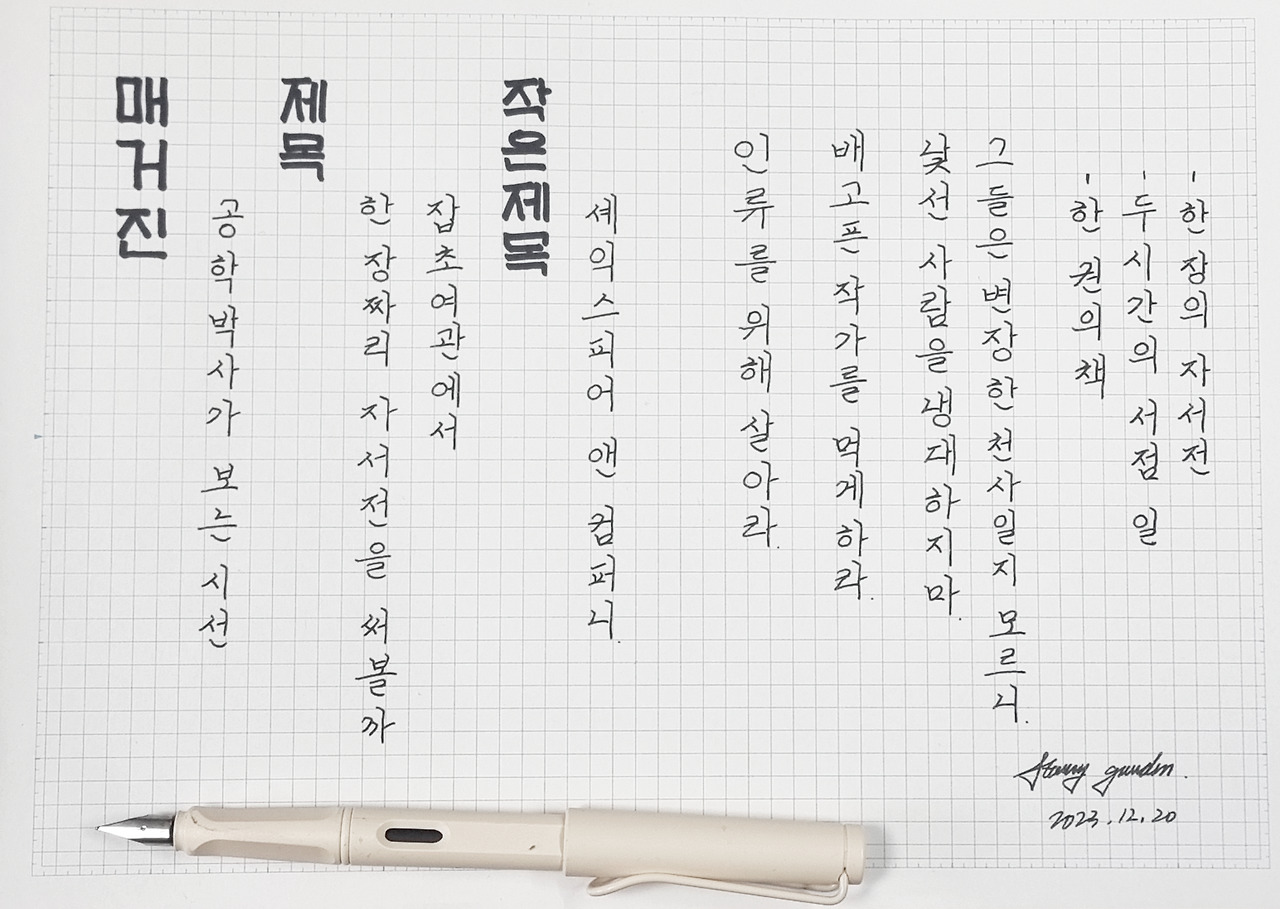 매거진
공학박사가 보는 시선
제목
한 장짜리 자서전을 써볼까
잡초여관에서
작은제목
셰익스피어 앤 컴퍼니.
인류를 위해 살아라.
배고픈 작가를 먹게하라.
낯선 사람을 냉대하지마.
그들은 변장한 천사일지 모르니.
-한 권의 책
-두 시간의 서점 일
-한 장의 자서전
2023.12.20